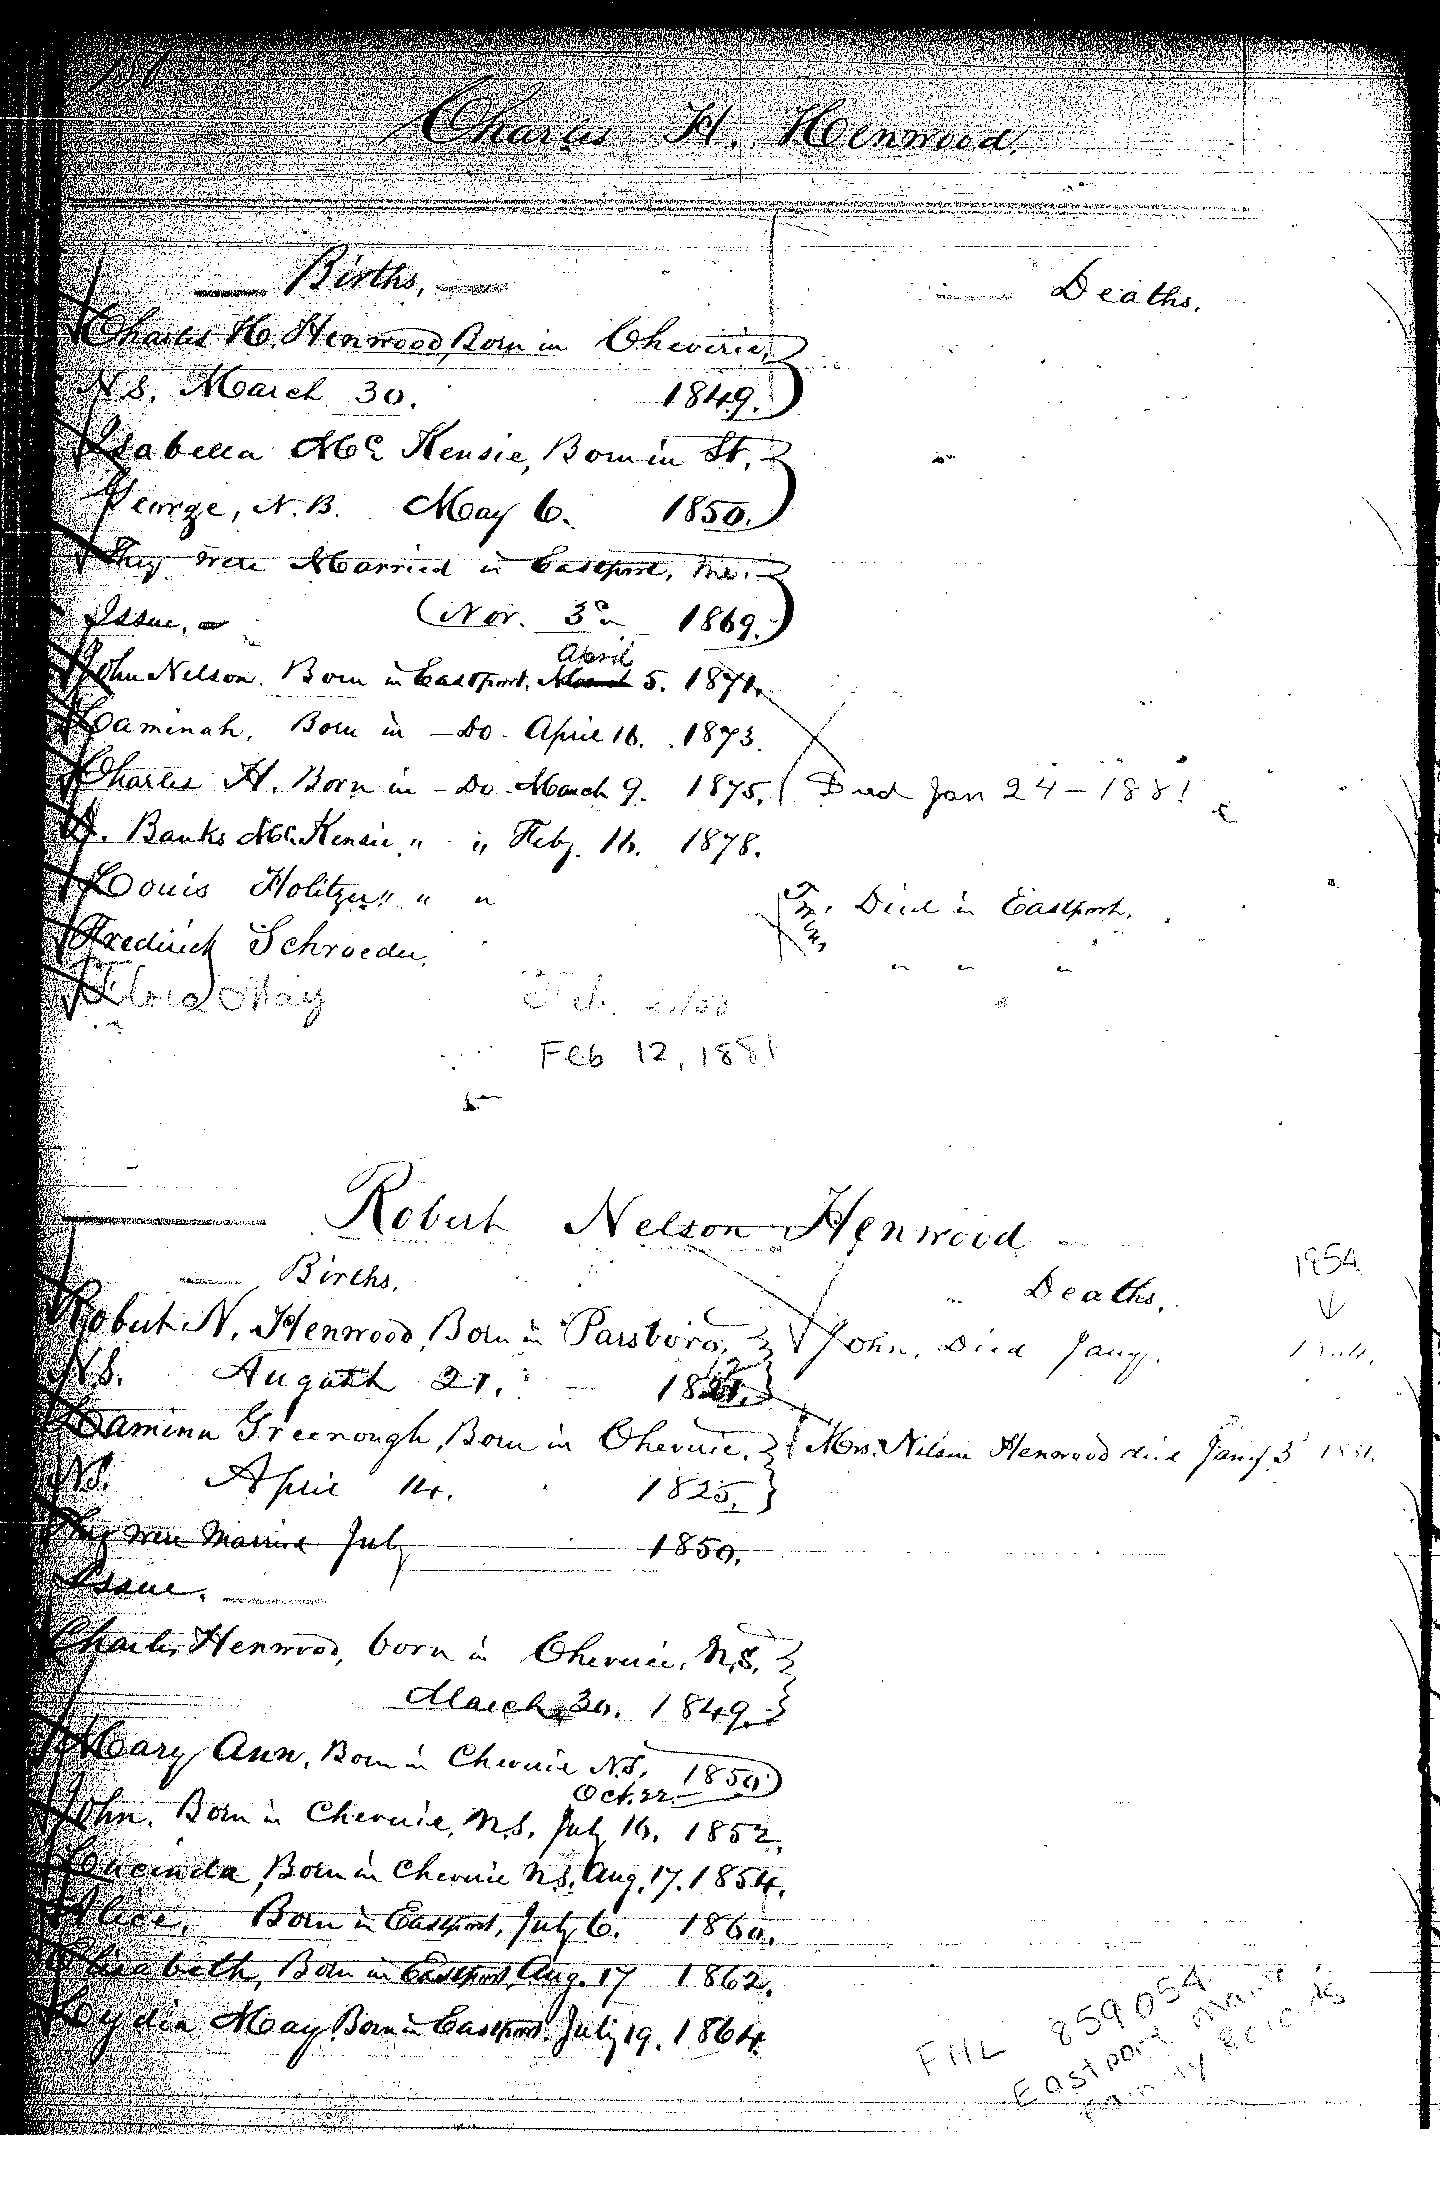 Charles H. Henwood.
Births. Deaths.
Charles H. Henwood, Born in Cheverie,
N.S. March 30. 1849.
Isabella Mc Kensie, Born in St.
George, N.B. May 6. 1850.
They were Married in Eastport, Me.
Issue. (Nov. 3d 1869.
April
John Nelson. Born in Eastport, 5. 1871.
Laminah, Born in Do. April 16. 1873.
Charles H. Born in Do. March 9. 1875. Died Jan 24 - 1881
Banks Mc Kensie " " Feby. 16. 1878.
Louis Holitzer " " "
Twins Died in Eastport.
Frederick Schroeder. " " "
Flora May Feb.
Feb 12, 1881
Robert Nelson Henwood
Births. Deaths. 1854
Robert N. Henwood, Born in Parsboro, John. Died Jany.
N.S. August 21. 18
Lamina Greenough, Born in Cheverie, Mrs. Nelson Henwood died Jany 3
N.S. April 14. 1825.
They were Married July 1850.
Issue.
Charles Henwood, born in Cheverie, N.S.
March 30. 1849.
Mary Ann, Born in Cheverie N.S. 1850
Oct. 22.
John. Born in Cheverie, N.S. July 16. 1852.
Lucinda, Born in Cheverie N.S. Aug. 17. 1854.
Alice, Born in Eastport, July 6. 1860.
Elisabeth, Born in Eastport, Aug. 17 1862.
Lydia May Born in Eastport. July 19. 1864
FHL 859054
Eastport Maine
Family Records